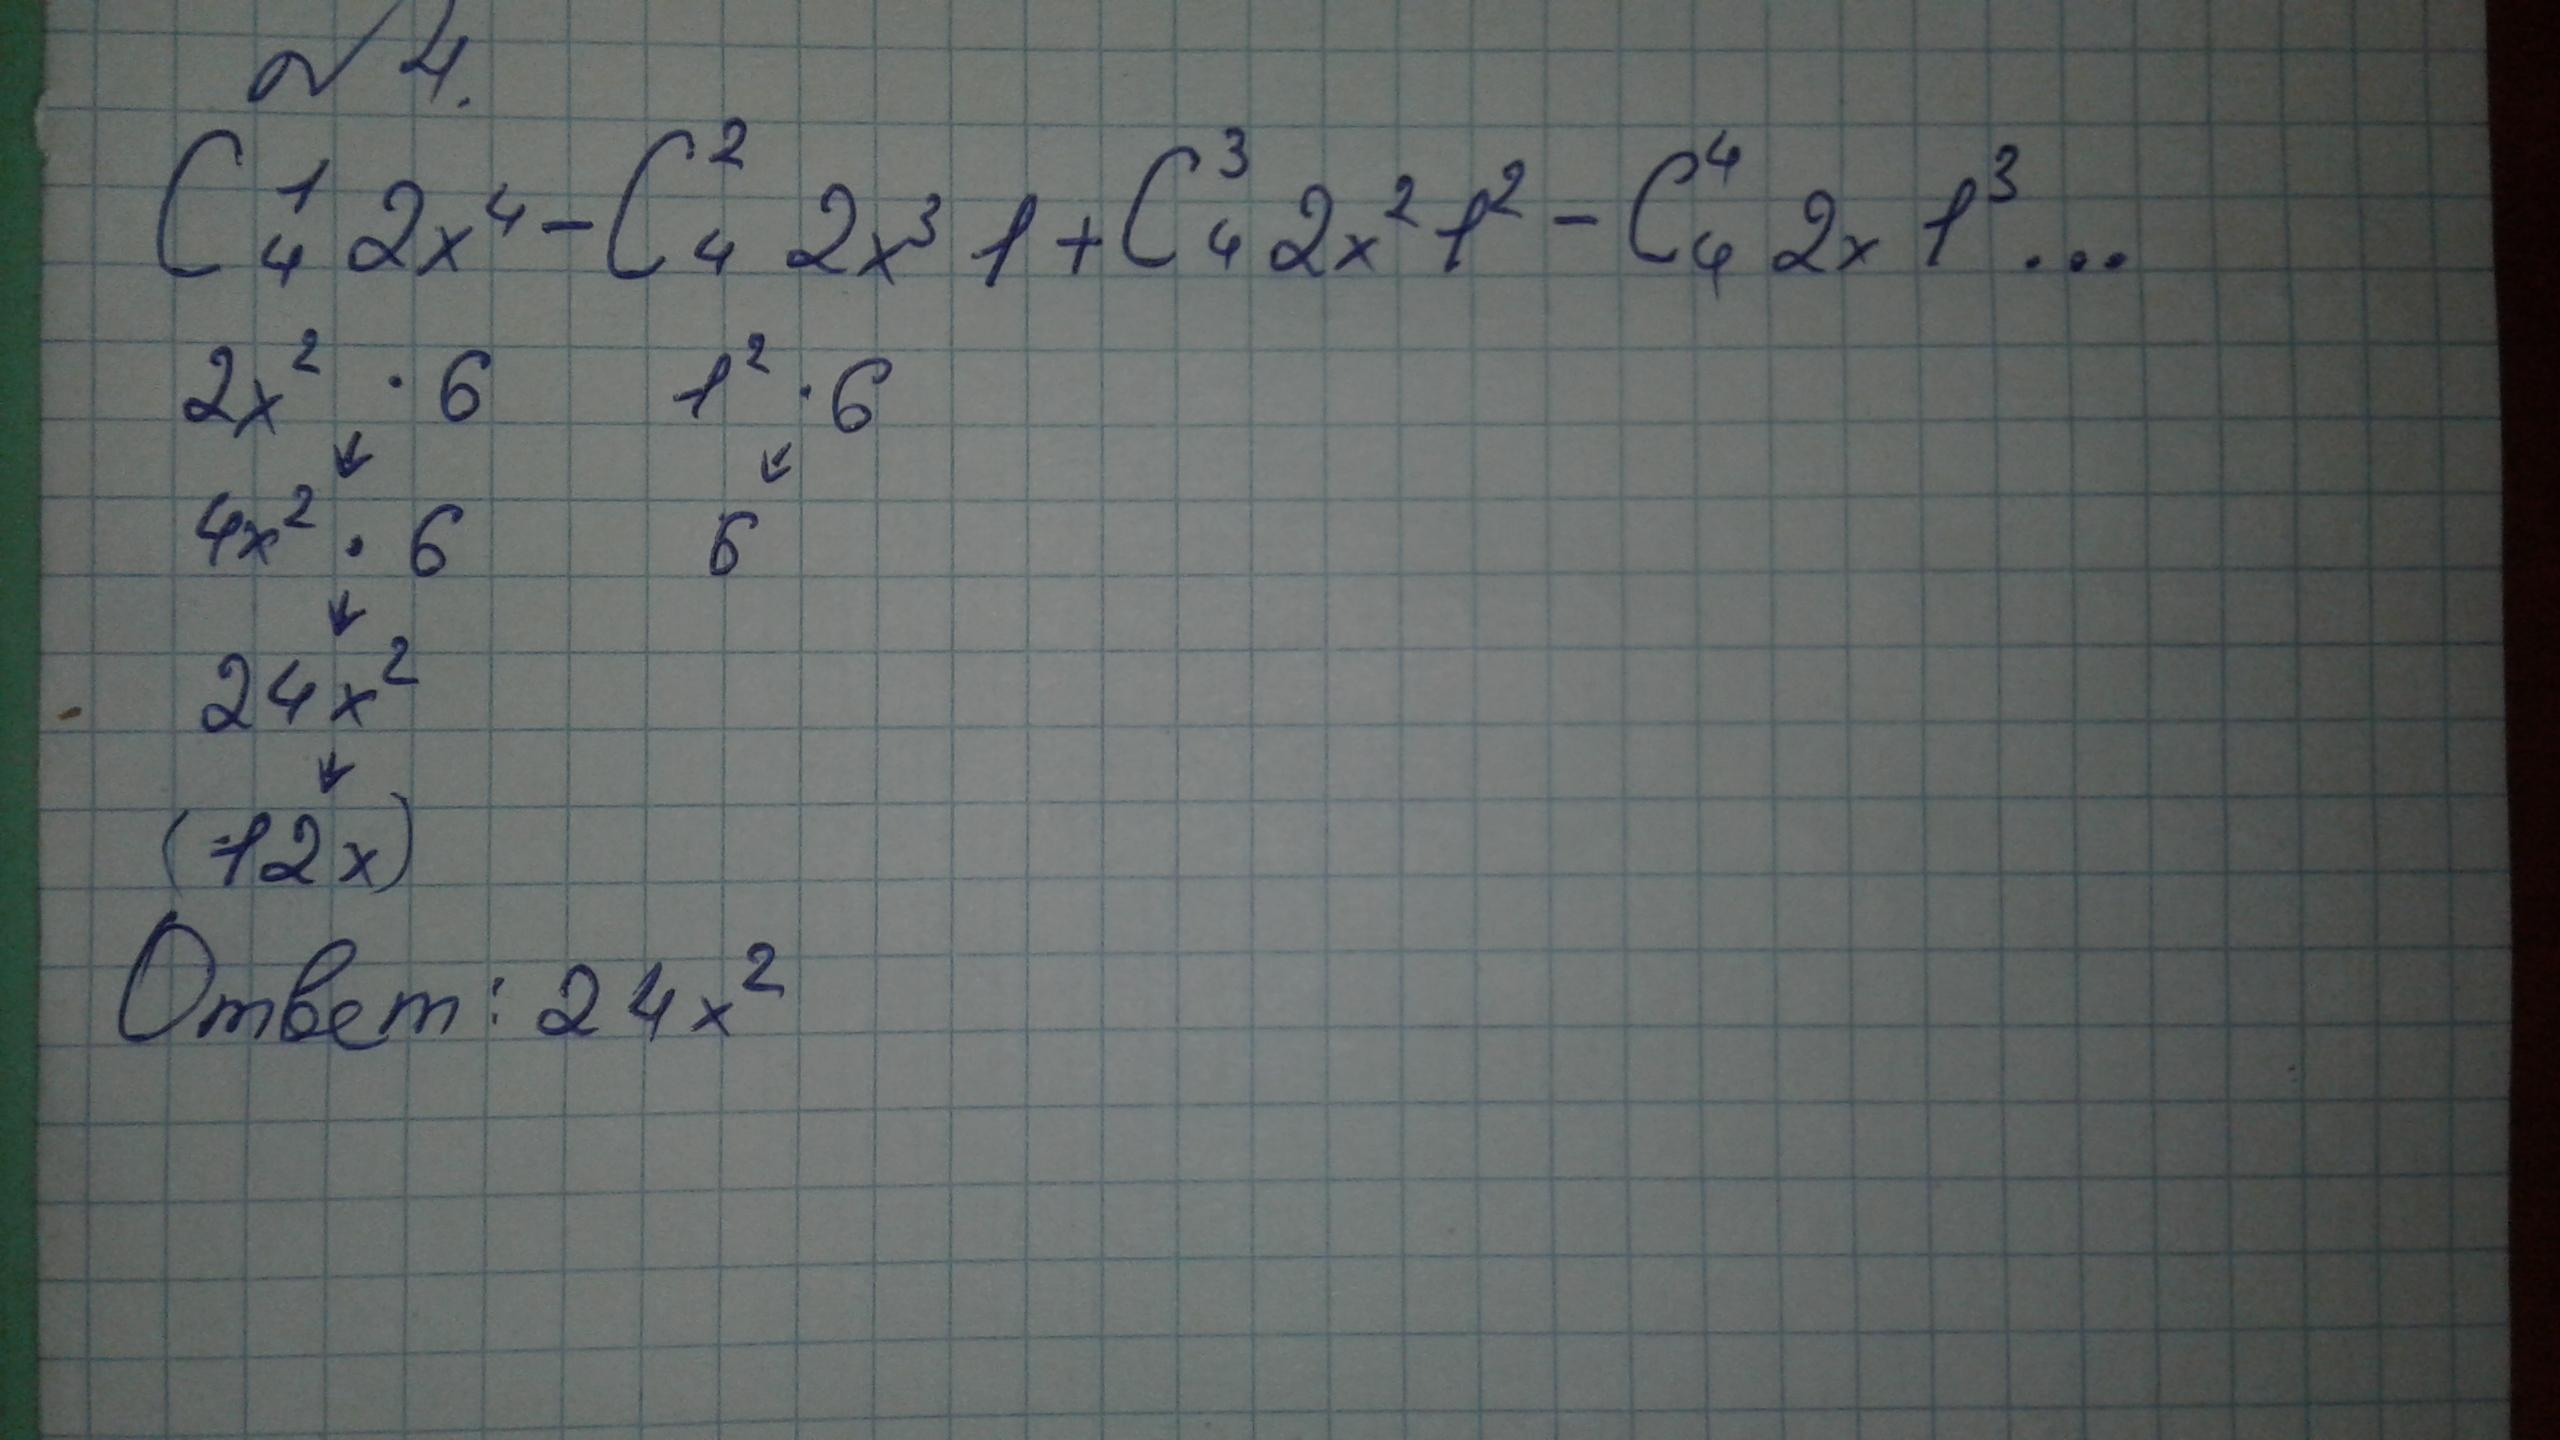 № 4.
C₄¹ 2x⁴ - C₄² 2x³ 1 + C₄³ 2x² 1² - C₄⁴ 2x 1³ ...
2x² · 6 1² · 6
↓ ↓
4x² · 6 6
↓
24x²
↓
(12x)
Ответ: 24x²